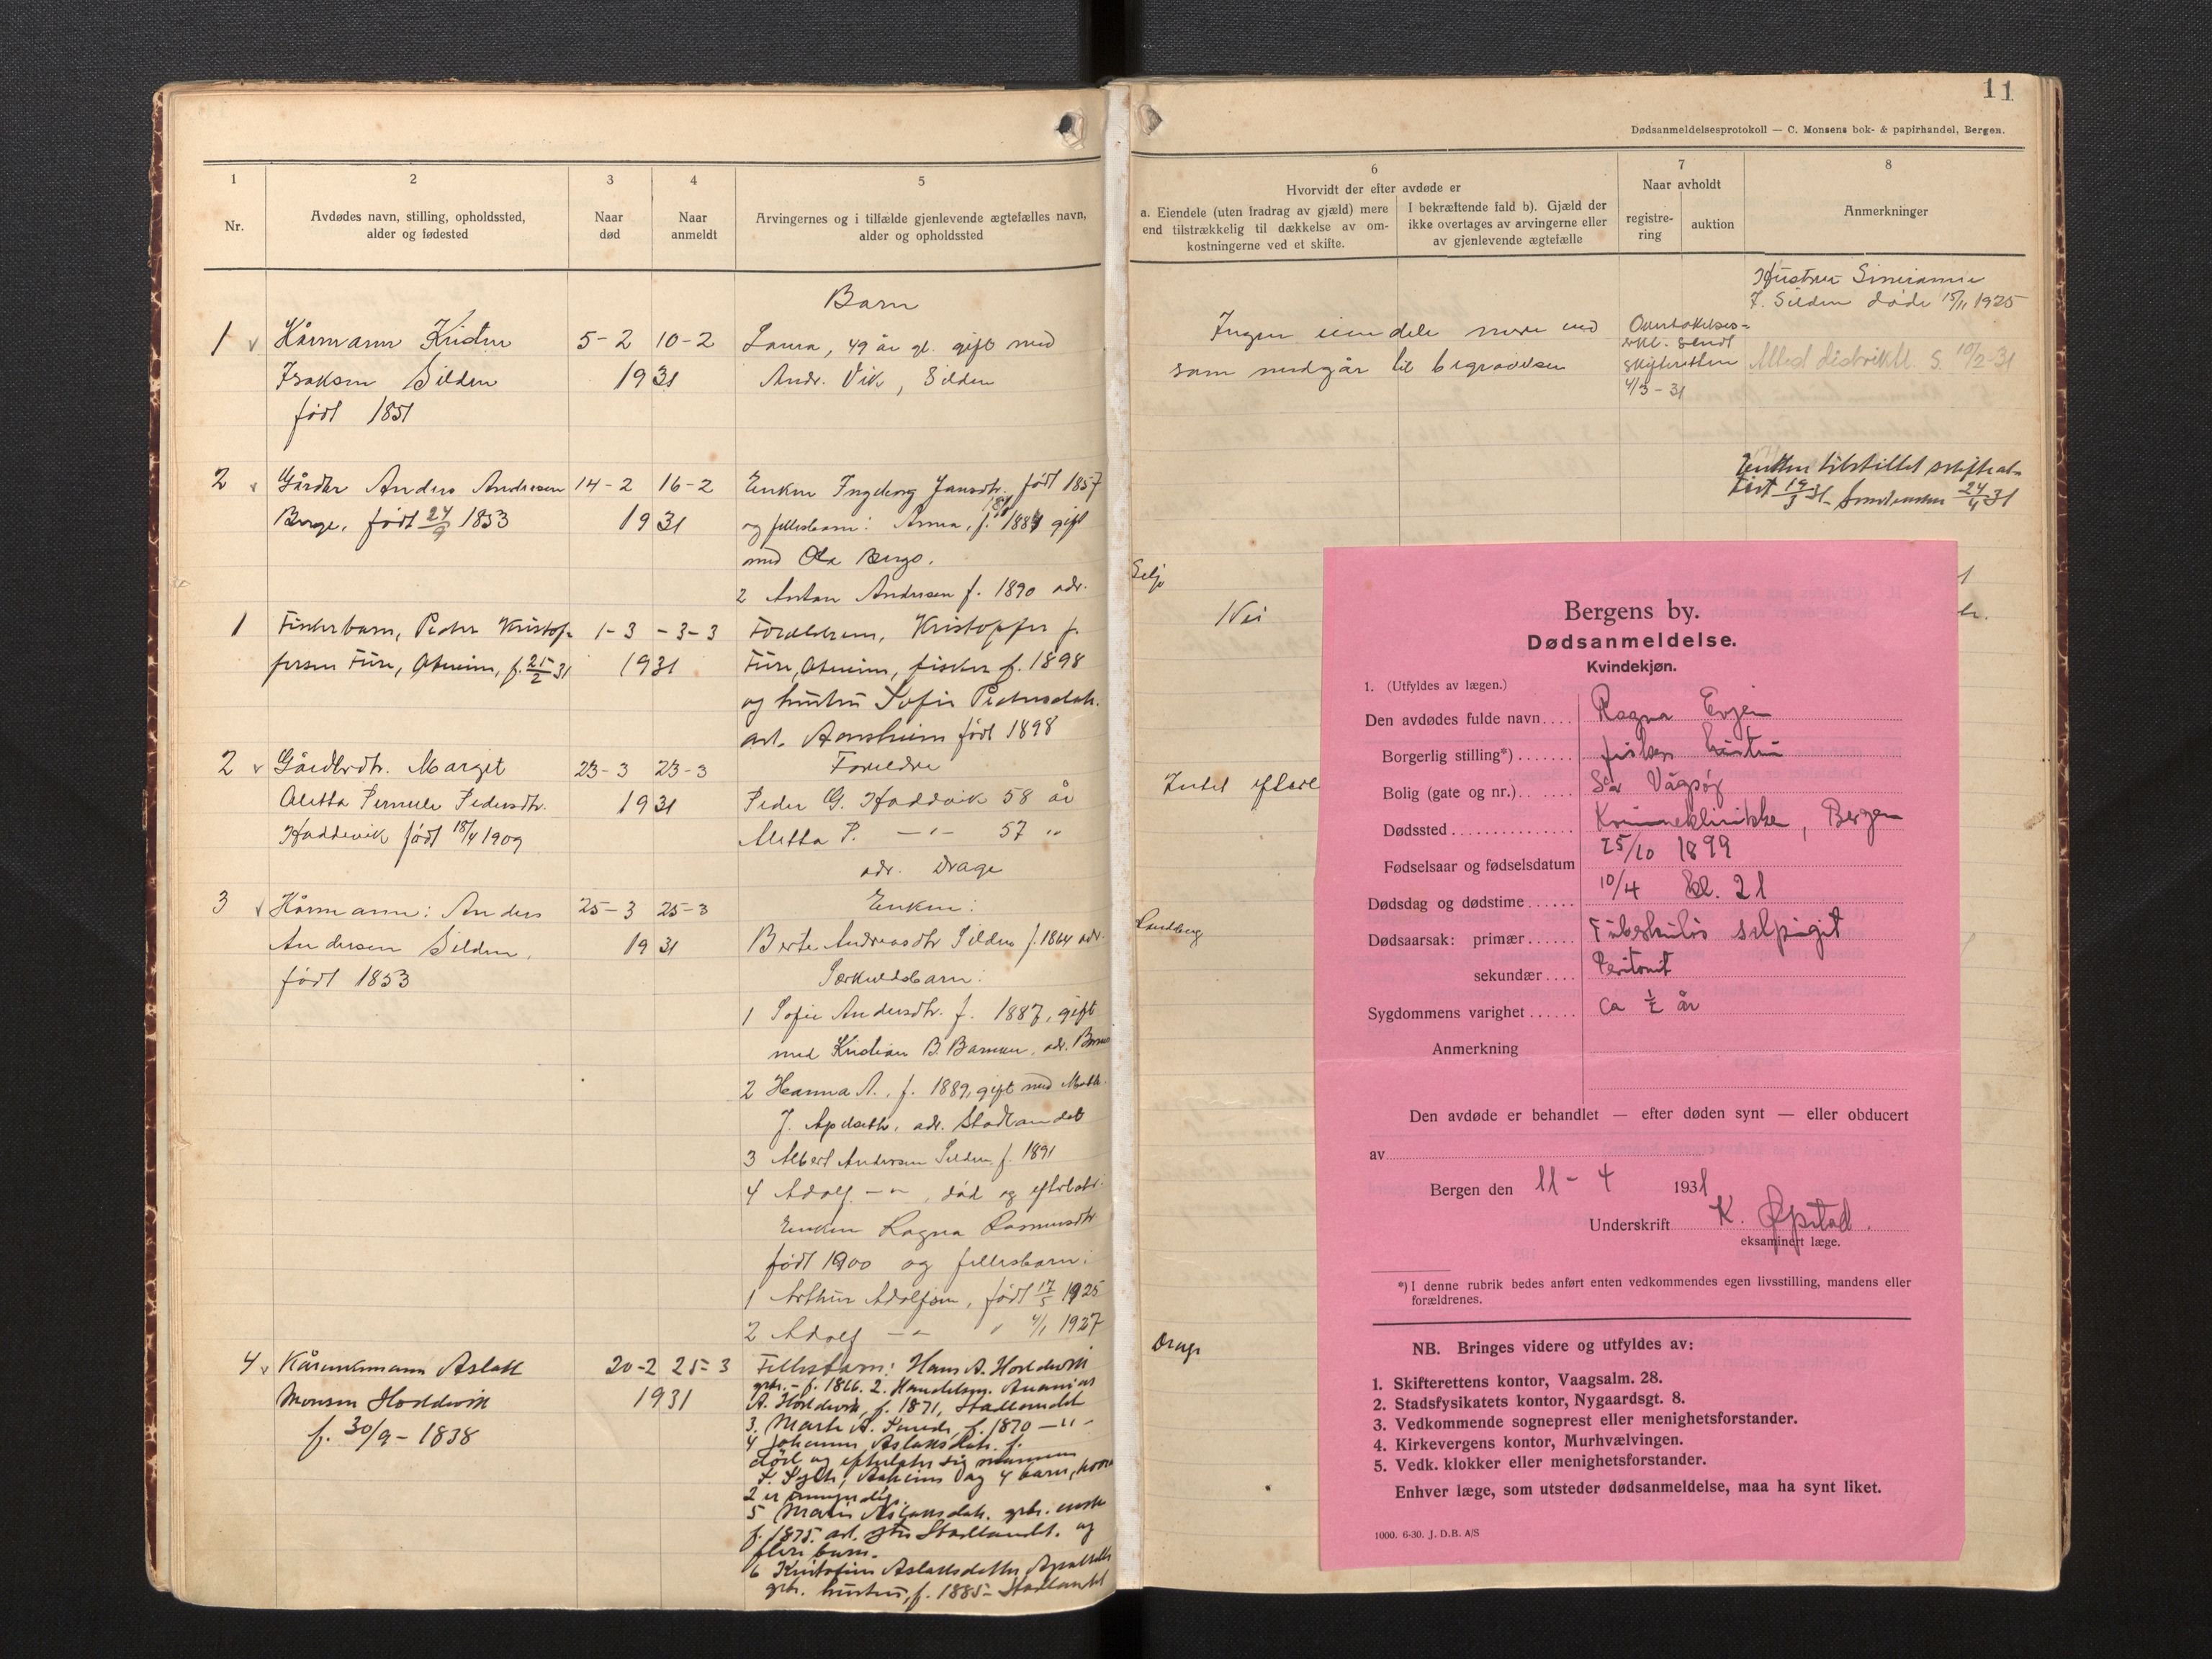 11
Dødsanmeldelsesprotokoll — C. Monsens bok- & papirhandel, Bergen.
1
Nr.
2
Avdødes navn, stilling, opholdssted,
alder og fødested
3
Naar
død
4
Naar
anmeldt
5
Arvingernes og i tilfælde gjenlevende ægtefælles navn,
alder og opholdssted
6
Hvorvidt der efter avdøde er
a. Eiendele (uten fradrag av gjæld) mere
end tilstrækkelig til dækkelse av om-
kostningerne ved et skifte.
I bekræftende fald b). Gjæld der
ikke overtages av arvingerne eller
av gjenlevende ægtefælle
7
Naar avholdt
registre-
ring
auktion
8
Anmerkninger
1 Kårmann Kristen
Isaksen Silden
født 1851
5-2 10-2
1931
Barn
Laura, 49 år gl. gift med
Andr. Vik, Silden
Ingen eiendele mere end
som medgår til begravelsen
skifteretten
4/3-31
Hustru
J. Silden døde 15/11 1925
10/2-31
2 Gårdbr Anders Andersen
Berge, født 24/9 1853
14-2 16-2
1931
Enken Ingeborg Jansdtr. født 1857
og fellesbarn: Anna, f. 1887 gift
med Ola Berge.
2 Anton Andersen f. 1890 adr.
Selje
1 Fiskerbarn, Peder Kristof-
fersen Fure, Åheim, f. 25/2 31
1-3 -3-3
1931
Foreldrene, Kristoffer f.
Fure, Åheim, fisker f. 1898
og hustru Sofie Pedersdtr.
født 1898
Nei
2 Gårdbrdtr. Margit
Aletta Pernille Pedersdtr.
Hoddevik født 18/4 1909
23-3 23-3
1931
Foreldre
Peder G. Hoddevik 58 år
Aletta P. —"— 57 "
adr. Drage
Intet efterl
3 Kårmann: Anders
Andersen Silden,
født 1853
25-3 25-3
1931
Enken:
Berte Andreasdtr Silden f. 1864 adr.
Særkuldsbarn:
1 Sofie Andersdtr. f. 1887, gift
med Kristian B. Barmen, adr.
2 Hanna A., f. 1889, gift med
J. Apelseth, adr. Stadlandet
3 Albert Andersen Silden f. 1891
4 Adolf —"—, død og efterlot:
Enken Ragna Rasmusdtr
født 1900 og fellesbarn:
1 Arthur Adolfsen, født 17/5 1925
2 Adolf —"— " 4/1 1927
4 Kårenkemann Aslak
Monsen Hoddevik
f. 30/9-1838
20-2 25-3
1931
Drage
Fellesbarn: Hans A. Hoddevik
gbr. - f. 1866. 2. Handelsm. Ananias
A. Hoddevik, f. 1871, Stadlandet
3. Marte A. f. 1870 —"—
4 Johanne Aslaksdatr. f.
død og efterlater sig mannen
og 4 barn, hvorav
2 er umyndige.
5 Aslaksdatr. gbr. enke
f. 1875. Stadlandet. og
flere barn.
6 Aslaksdatter
gbr. hustru, f. 1885 - Stadlandet
Bergens by.
Dødsanmeldelse.
Kvindekjøn.
1. (Utfyldes av lægen.)
Den avdødes fulde navn.... Ragna Evjen
Borgerlig stilling*)....... fiskers hustru
Bolig (gate og nr.)...... Sør Vågsøy
Dødssted.............. Kvinneklinikken, Bergen
Fødselsaar og fødselsdatum 25/10 1899
Dødsdag og dødstime...... 10/4 kl. 21
Dødsaarsak: primær...... Tuberkuløs salpingit
sekundær.... Peritonit
Sygdommens varighet...... ca ½ år
Anmerkning
Den avdøde er behandlet — efter døden synt — eller obducert
av
Bergen den 11 - 4 1931
Underskrift K. Øpstad.
eksaminert læge.
*) I denne rubrik bedes anført enten vedkommendes egen livsstilling, mandens eller
forældrenes.
NB. Bringes videre og utfyldes av:
1. Skifterettens kontor, Vaagsalm. 28.
2. Stadsfysikatets kontor, Nygaardsgt. 8.
3. Vedkommende sogneprest eller menighetsforstander.
4. Kirkevergens kontor, Murhvælvingen.
5. Vedk. klokker eller menighetsforstander.
Enhver læge, som utsteder dødsanmeldelse, maa ha synt liket.
1000. 6-30. J. D. B. A/S